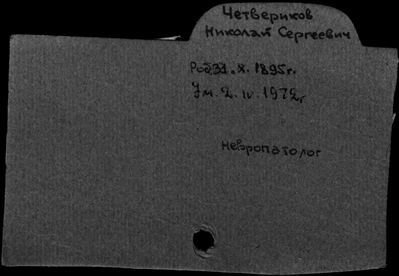 Четвериков
Николай Сергеевич
Род. X. 1895г.
Ум. 2. IV. 1972г
Невропатолог